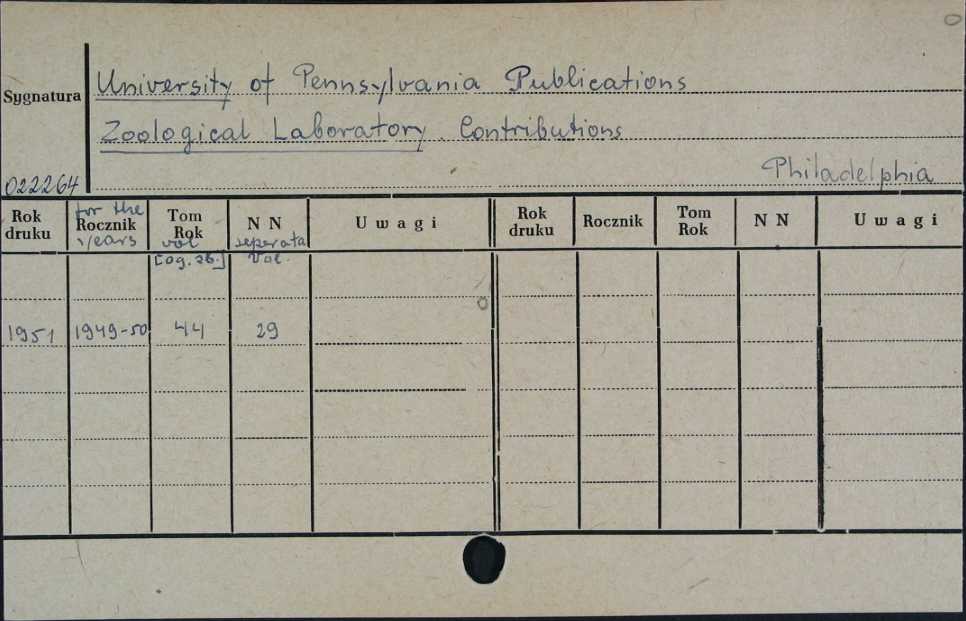 University of Pennsylvania Publications
Sygnatura
Zoological Laboratory. Contributions
Philadelphia
022264
Rok druku for the Rocznik years Tom Rok vol [og. zb.] N N seperata Vol. Uwagi Rok druku Rocznik Tom Rok N N Uwagi
1951 1949-50 44 29